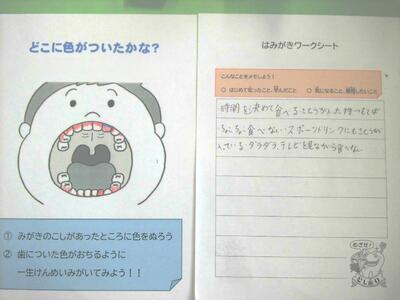 どこに色がついたかな?
① みがきのこしがあったところに色をぬろう
② 歯についた色がおちるように
一生けんめいみがいてみよう!!
はみがきワークシート
こんなことをメモしよう!
○ はじめて知ったこと、学んだこと
○ 気になること、
時間を決めて食べる
食べない スポーツドリンクにもさとうが
入っている ダラダラ テレビを見ながら食べない
めざせ!